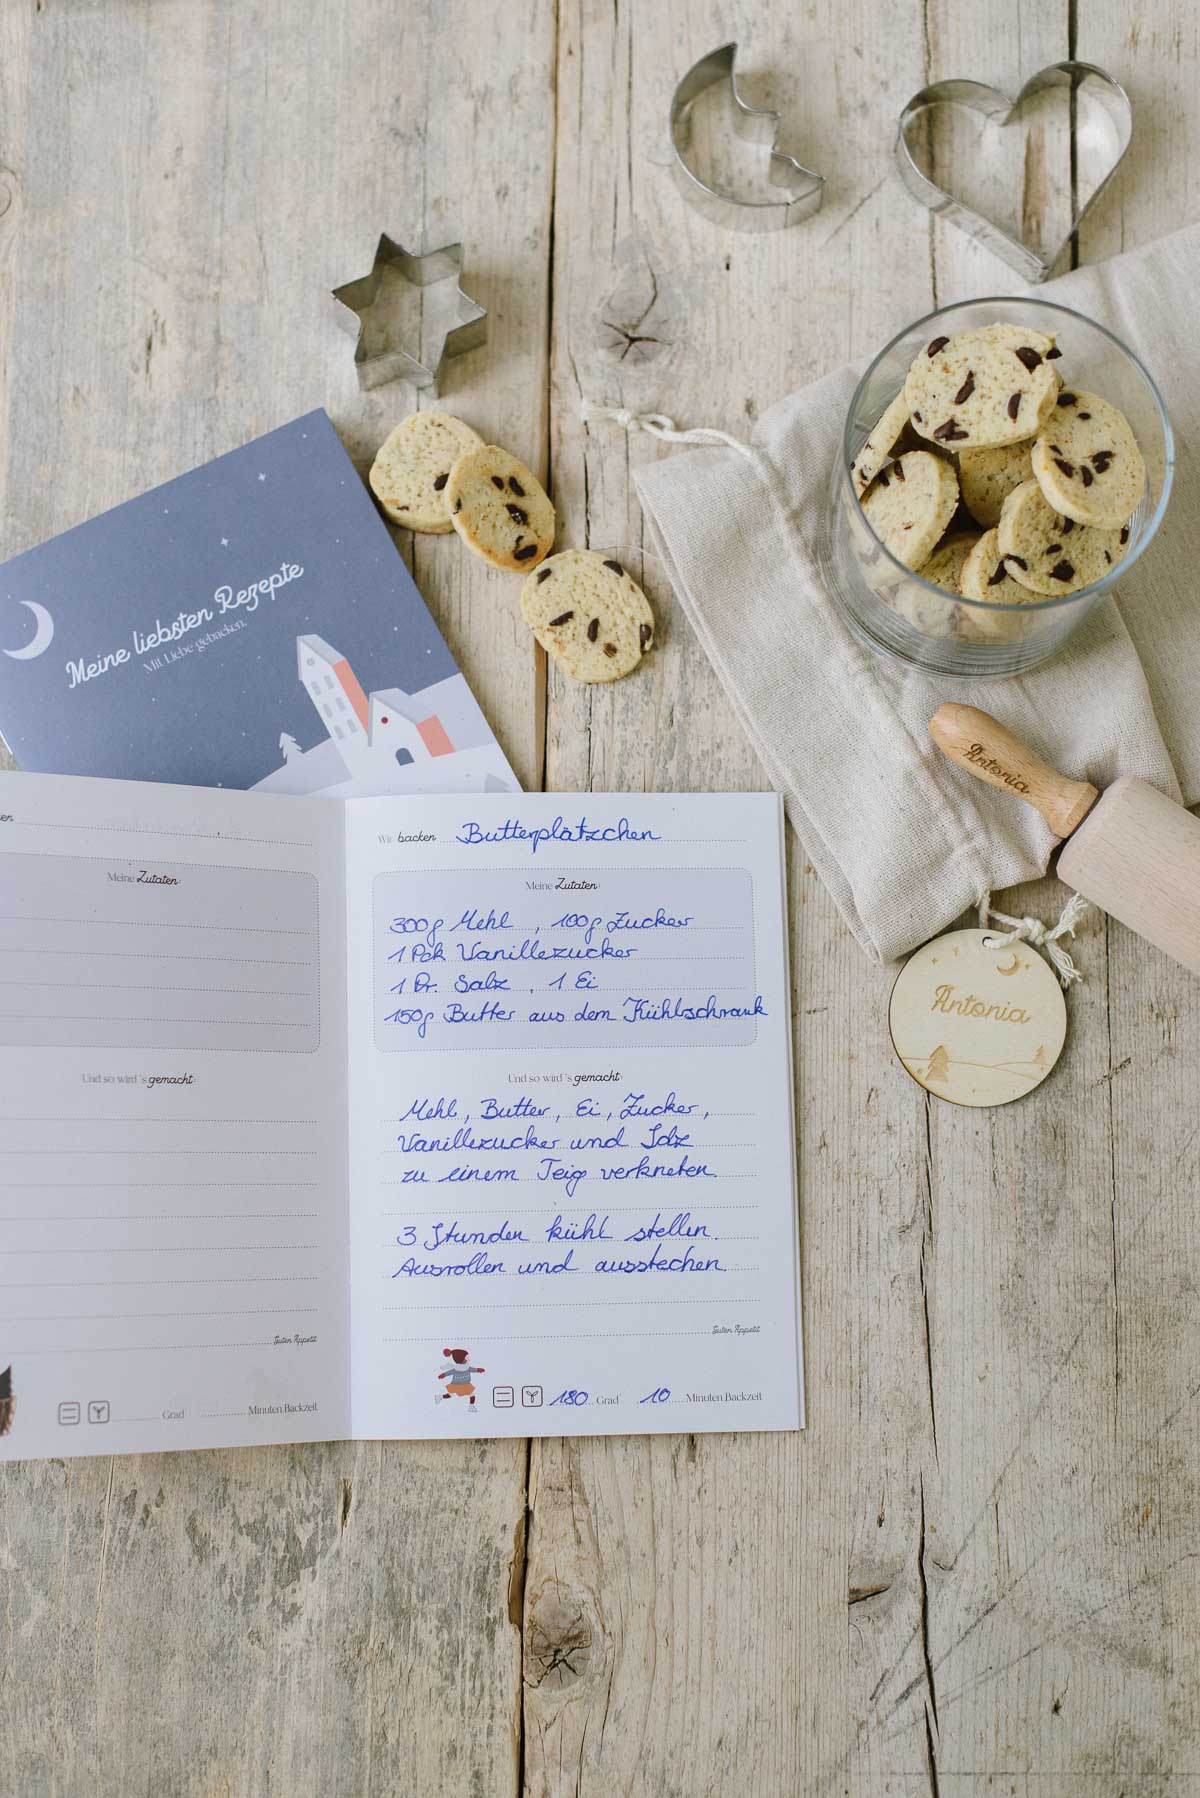 Meine liebsten Rezepte
Mit Liebe gebacken.
Antonia
Antonia
Meine Zutaten:
Und so wird's gemacht:
Guten Appetit
Grad°
Minuten Backzeit
Wir backen Butterplätzchen
Meine Zutaten:
300g Mehl , 100g Zucker
1 Pck Vanillezucker
1 Pr. Salz , 1 Ei
150g Butter aus dem Kühlschrank
Und so wird's gemacht:
Mehl, Butter, Ei, Zucker,
Vanillezucker und Salz
zu einem Teig verkneten.
3 Stunden kühl stellen.
Ausrollen und ausstechen.
Guten Appetit
180 Grad° 10 Minuten Backzeit